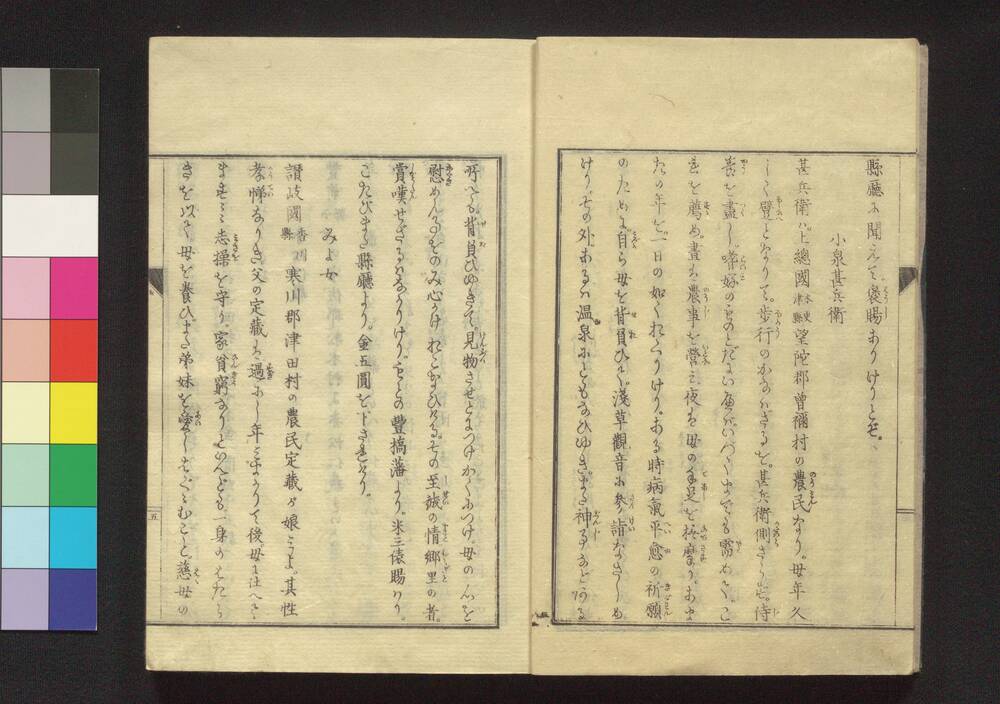 縣廳に聞えて褒賜ありけりとぞ、
小泉甚兵衛
甚兵衛ハ上總國木更津縣望陀郡曾禰村の農民なり。母年久
しく躄となりて。歩行のかなハざるを。甚兵衛側さらず。侍
養を盡し。嗜好のものとだにいへバ。いつくまでも需めて。こ
れを薦め。晝ハ農事を營ミ夜ハ母の手足を按摩り。およ
たの年ど一日の如くなりけり。ある時病氣平愈の祈願
のためよ自ら母を背負ひて。淺草觀音に參詣なさしめ
けり。その外あるハ温泉にもともなひゆき。また神事などある
所へも背負ひゆきて。見物させとにつけかくにつけ。母の心を
慰めん事をのみ心かけ。れこなひける。その至誠の情郷里の者。
賞嘆せざるハなかりけり。もとの豐搞藩より。米三俵賜ハり。
こたびまた縣廳より。金五圓を下されけり。
みよ女
讃岐國香川縣寒川郡津田村の農民定藏が娘みよ。其性
孝悌なりき父の定藏ハ過にし年ミまかりて後。母に仕へて
ますます志操を守り。家貧窮なりといへども。一身のはたら
きを以て。母を養ひまた弟妹を愛しはごくむこと。慈母の
五